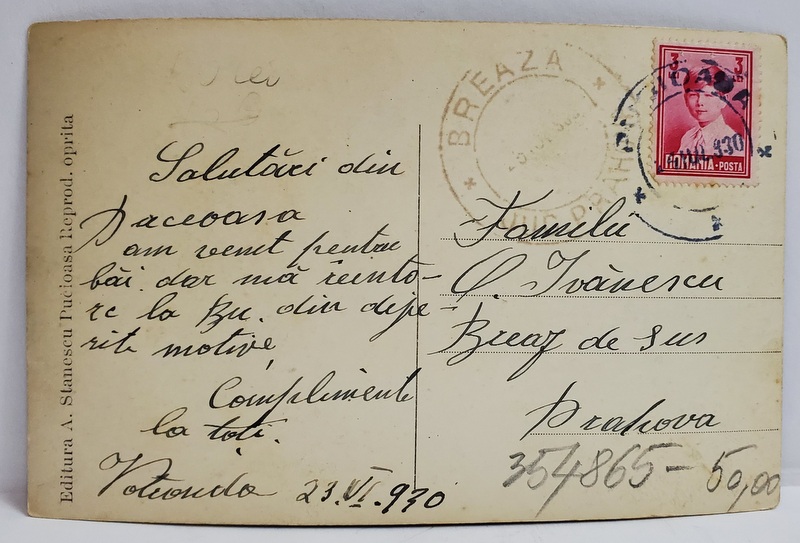 Editura A. Stanescu Pucioasa Reprod. oprita
Salutări din
Pucioasa
am venit pentru
băi. dar mă reînto-
rc la Bu. din dife-
rite motive
Complimente
la toți.
23.VI.930
BREAZA
JUD. PRAHOVA
PUCIOASA
3
3
ROMANIA-POSTA
Familii
Ivănescu
Breaz de sus
Prahova
354865- 50,00